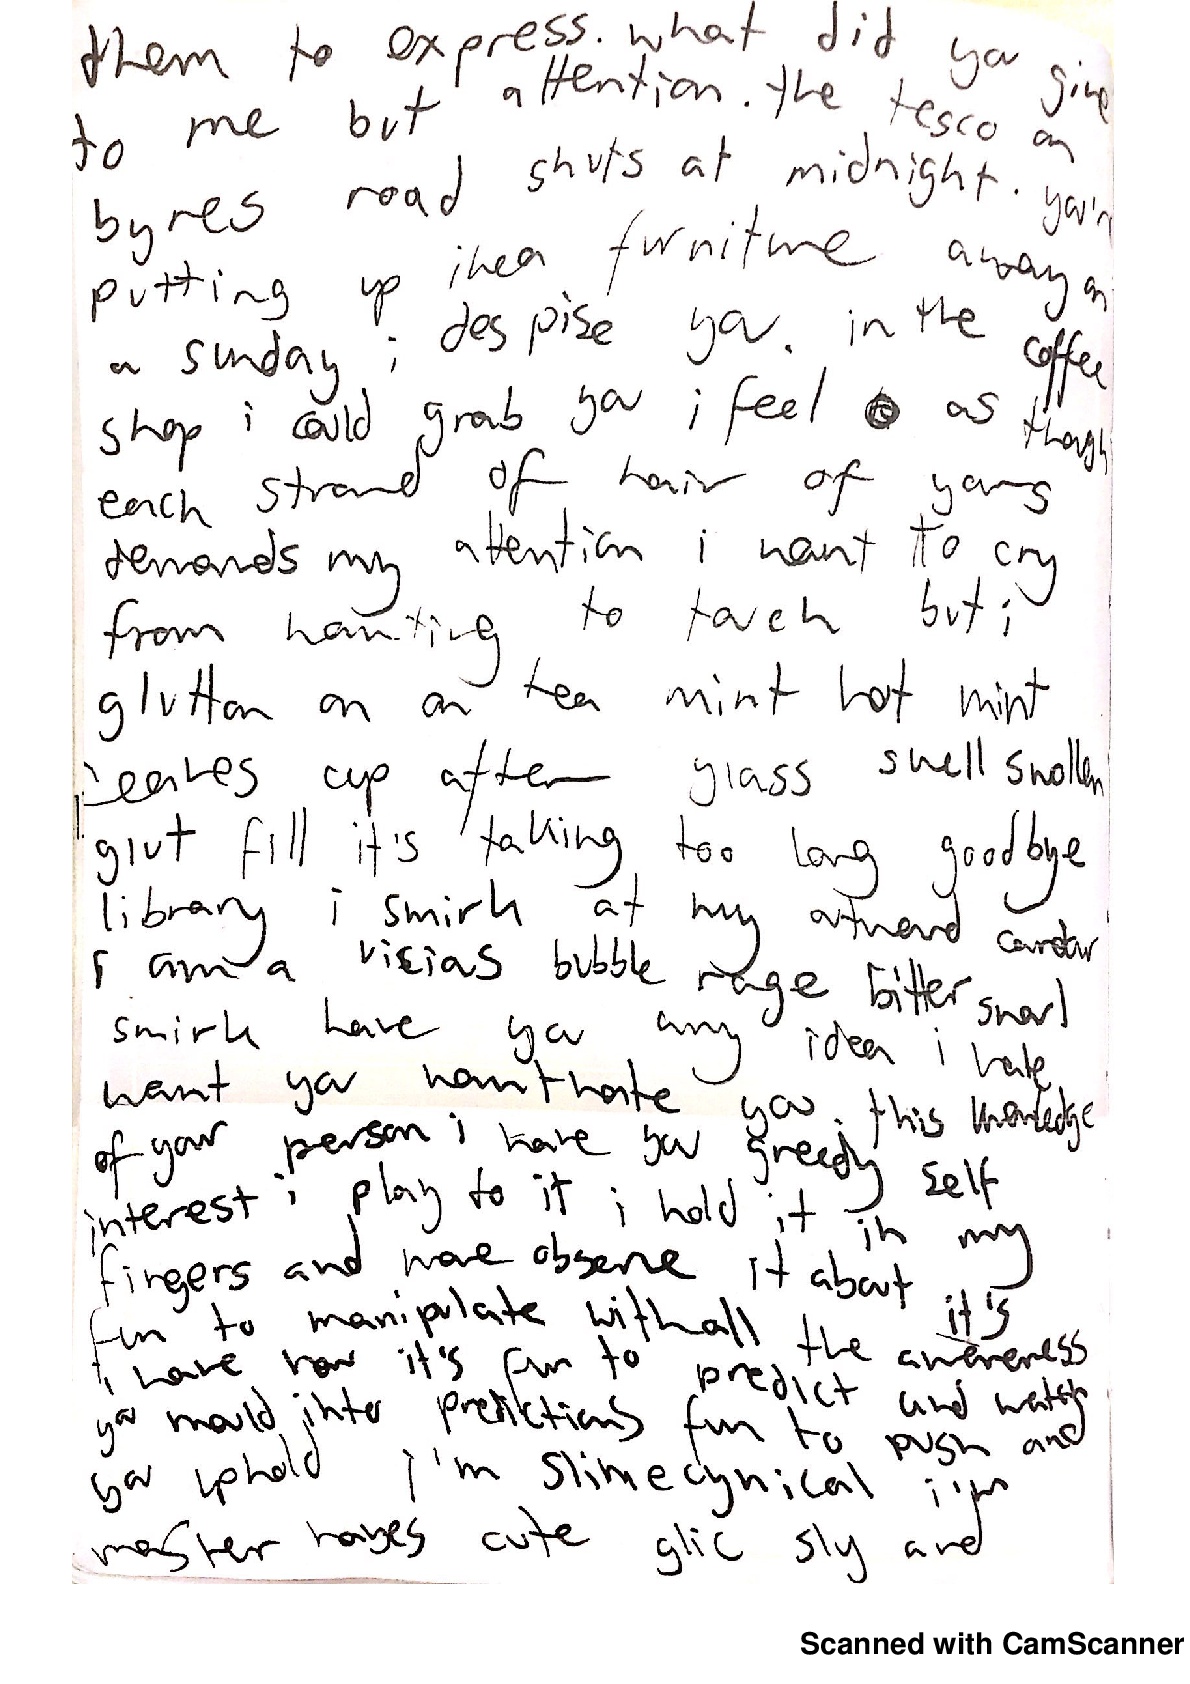 them to express. what did you give
to me but attention. the tesco on
byres road shuts at midnight. you're
putting up ikea furniture away on
a sunday i despise you. in the coffee
shop i could grab you i feel as though
each strand of hair of yours
demands my attention i want to cry
from wanting to touch but i
glutton on on tea mint hot mint
leaves cup after glass swell swollen
glut fill it's taking too long goodbye
library i smirk at my awkward
i am a vicious bubble rage bitter snarl
smirk have you any idea i hate
want you wanthate you. this knowledge
of your person i have you greedy self
interest i play to it i hold it in my
fingers and move observe it about it's
fun to manipulate withall the awareness
i have now it's fun to predict and watch
you mould into predictions fun to push and
you uphold i'm slimecynical i'm
master cute glic sly and
Scanned with CamScanner